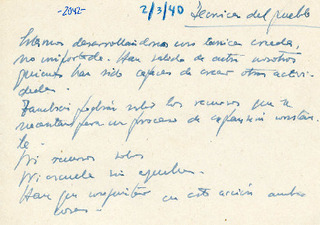 -2042-
2/3/40
Técnica del pueblo
Estamos desarrollándonos una técnica creada,
no importada. Han salido de entre nosotros
quienes han sido capaces de crear otras activi-
dades.
También podrán salir los recursos que se
necesitan para un proceso de expansión constan-
te.
Ni recursos solos
Ni escuela sin ayudas.
Hay que conquistar en esta acción ambas
cosas.-